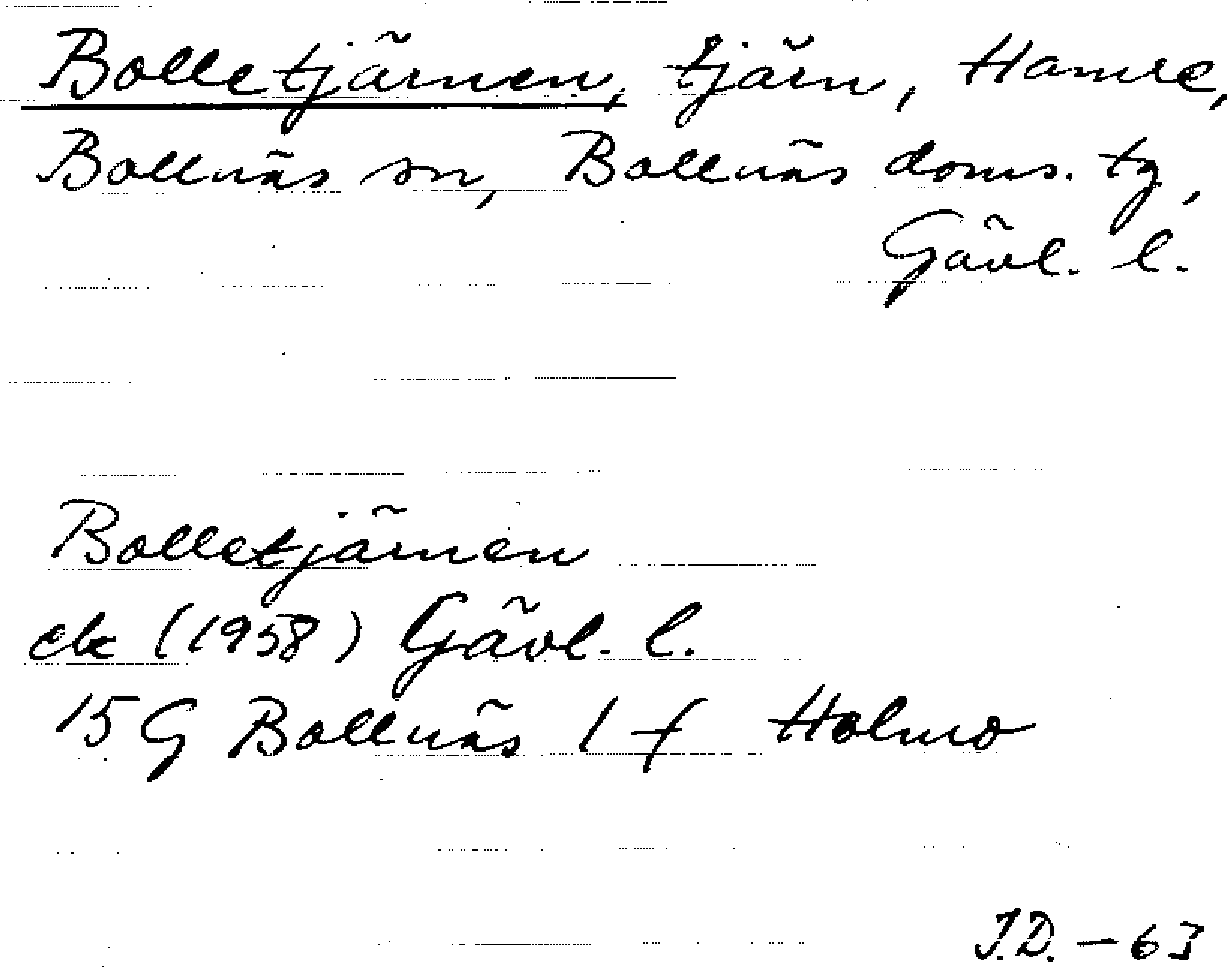 Bolletjärnen, tjärn, Hamre,
Bollnäs sn, Bollnäs doms. tg,
Gävl. l.
Bolletjärnen
ek (1958) Gävl. l.
15 G Bollnäs 1 f Holmo
J.D. – 63